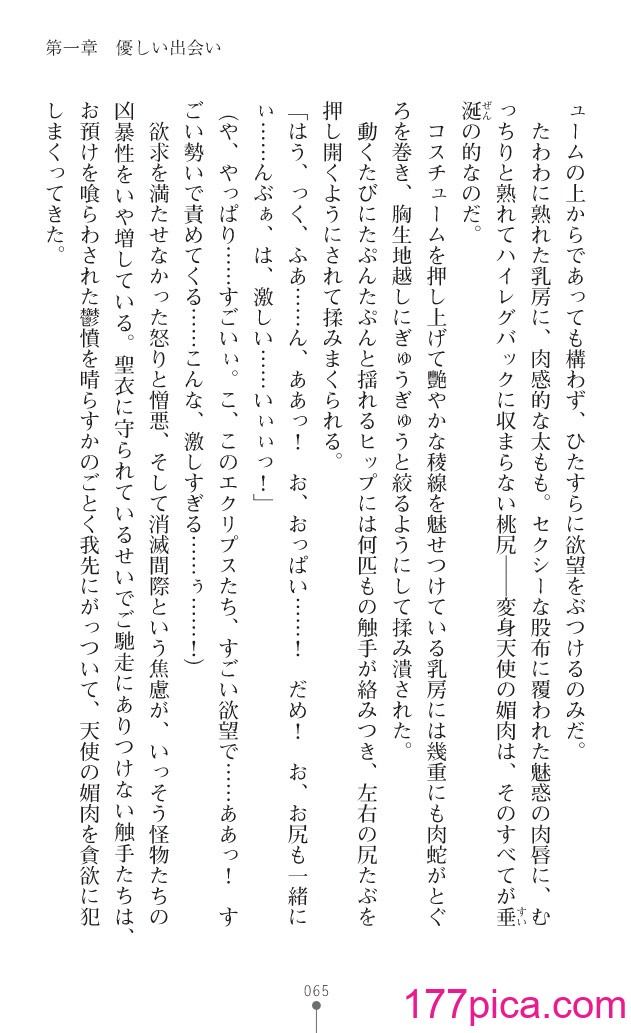 第一章　優しい出会い
ュームの上からであっても構わず、ひたすらに欲望をぶつけるのみだ。
　たわわに熟れた乳房に、肉感的な太もも。セクシーな股布に覆われた魅惑の肉唇に、む
っちりと熟れてハイレグバックに収まらない桃尻――変身天使の媚肉は、そのすべてが垂すい
涎ぜんの的なのだ。
　コスチュームを押し上げて艶やかな稜線を魅せつけている乳房には幾重にも肉蛇がとぐ
ろを巻き、胸生地越しにぎゅうぎゅうと絞るようにして揉み潰された。
　動くたびにたぷんたぷんと揺れるヒップには何匹もの触手が絡みつき、左右の尻たぶを
押し開くようにされて揉みまくられる。
「はう、っく、ふあ……ん、ああっ！　お、おっぱい……！　だめ！　お、お尻も一緒に
ぃ……んぶぁ、は、激しい……いぃぃっ！」
（や、やっぱり……すごいぃ。こ、このエクリプスたち、すごい欲望で……ああっ！　す
ごい勢いで責めてくる……こんな、激しすぎる……ぅ……！）
　欲求を満たせなかった怒りと憎悪、そして消滅間際という焦慮が、いっそう怪物たちの
凶暴性をいや増している。聖衣に守られているせいでご馳走にありつけない触手たちは、
お預けを喰らわされた鬱憤を晴らすかのごとく我先にがっついて、天使の媚肉を貪欲に犯
しまくってきた。
065
177pica.com